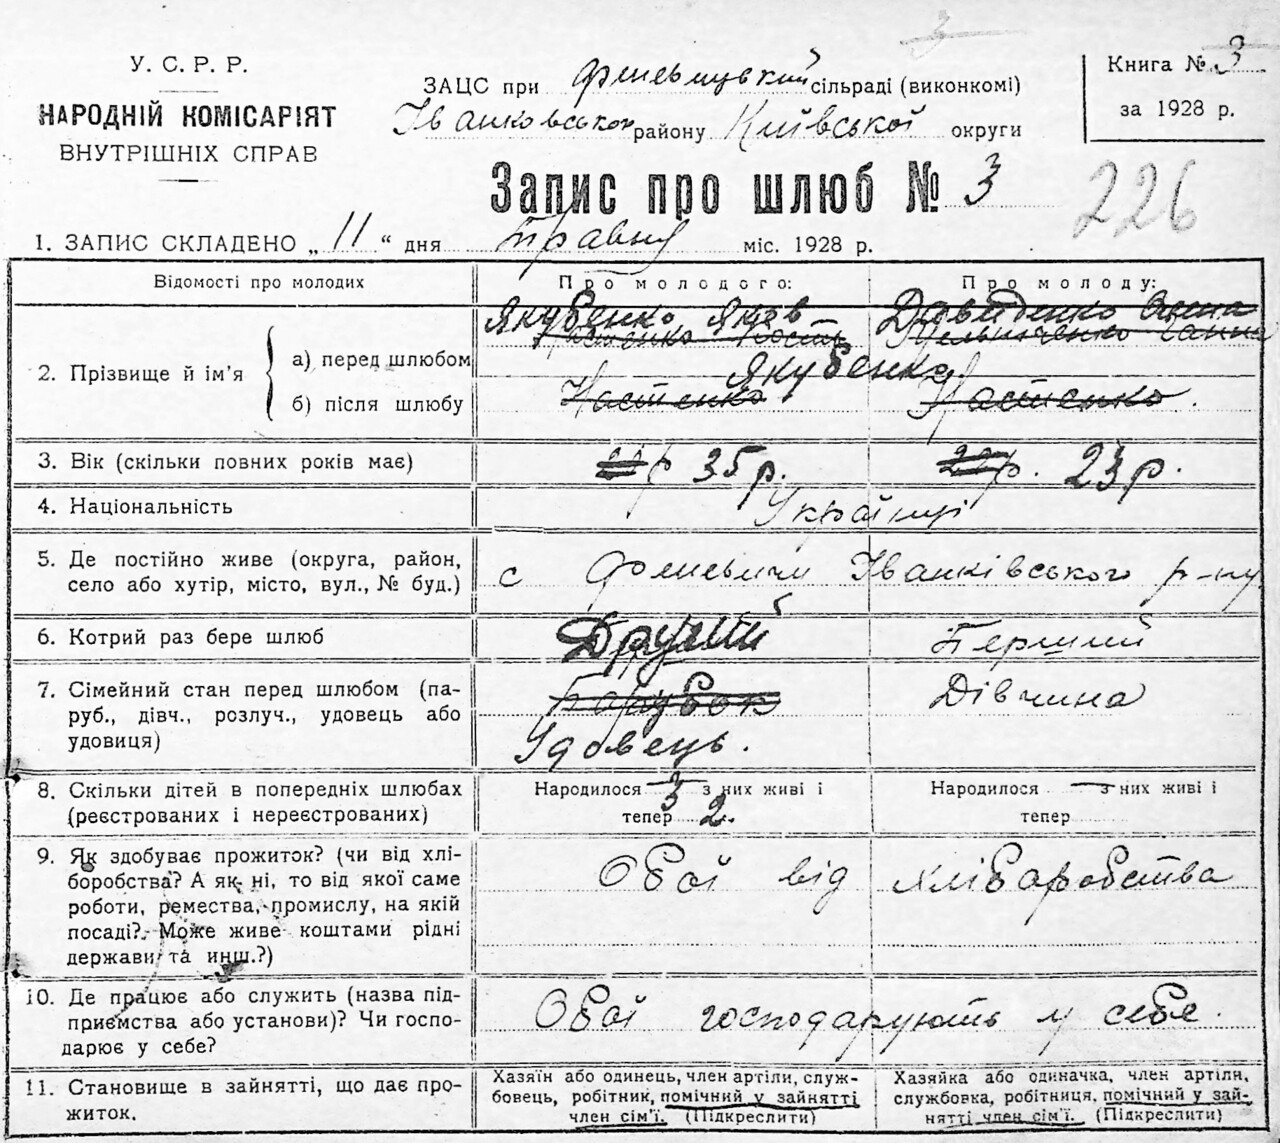 3
У. С. Р. Р.
НАРОДНІЙ КОМІСАРІЯТ
ВНУТРІШНІХ СПРАВ
ЗАЦС при Феневицький сільраді (виконкомі)
Іванковського району Київської округи
Книга № 3
за 1928 р.
Запис про шлюб № 3
226
1. ЗАПИС СКЛАДЕНО „ 11 “ дня Травня міс. 1928 р.
Відомості про молодих
Про молодого:
Про молоду:
2. Прізвище й ім'я
а) перед шлюбом
б) після шлюбу
Якубенко Яків
Костенко Кость
Давиденко Анна
Мельниченко Ганна
Якубенко
Костенко
Костенко.
3. Вік (скільки повних років має)
р 35 р.
22 р. 23 р.
4. Національність
Українці
5. Де постійно живе (округа, район,
село або хутір, місто, вул., № буд.)
с Феневичи Іванківського р-ну
6. Котрий раз бере шлюб
Другий
Перший
7. Сімейний стан перед шлюбом (па-
руб., дівч., розлуч., удовець або
удовиця)
Парубок
Удовець.
Дівчина
8. Скільки дітей в попередніх шлюбах
(реєстрованих і нереєстрованих)
Народилося 3 з них живі і
тепер 2.
Народилося — з них живі і
тепер
9. Як здобуває прожиток? (чи від хлі-
боробства? А як ні, то від якої саме
роботи, ремества, промислу, на якій
посаді? Може живе коштами рідні
держави та инш.?)
Обоі від хліборобства
10. Де працює або служить (назва під-
приємства або установи)? Чи госпо-
дарює у себе?
Обоі господарують у себе.
11. Становище в зайнятті, що дає про-
житок.
Хазяїн або одинець, член артіли, служ-
бовець, робітник, помічний у зайнятті
член сім'ї. (Підкреслити)
Хазяйка або одиначка, член артіли,
службовка, робітниця, помічний у зай-
нятті член сім'ї. (Підкреслити)